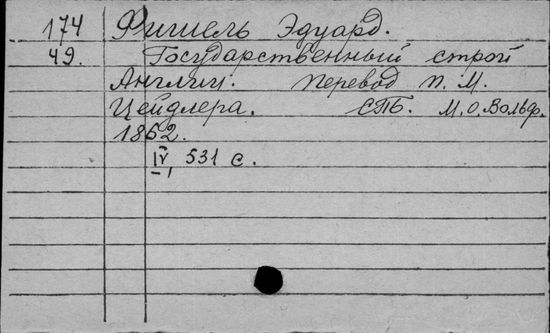 174 Фишель Эдуард.
49. Государственный строй
Англии. Перевод П. М.
Цейдлера. СПБ. М.О.Вольф.
1862.
IV, 531 с.